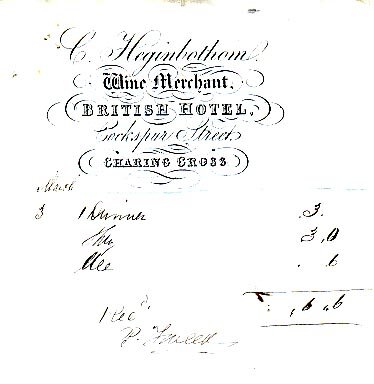 C. Heginbothom.
Wine Merchant.
BRITISH HOTEL,
Cockspur Street
CHARING CROSS
March
3 1 Dinner 3.
3 , 0
Ale . 6
, 6 , 6
Rec.d